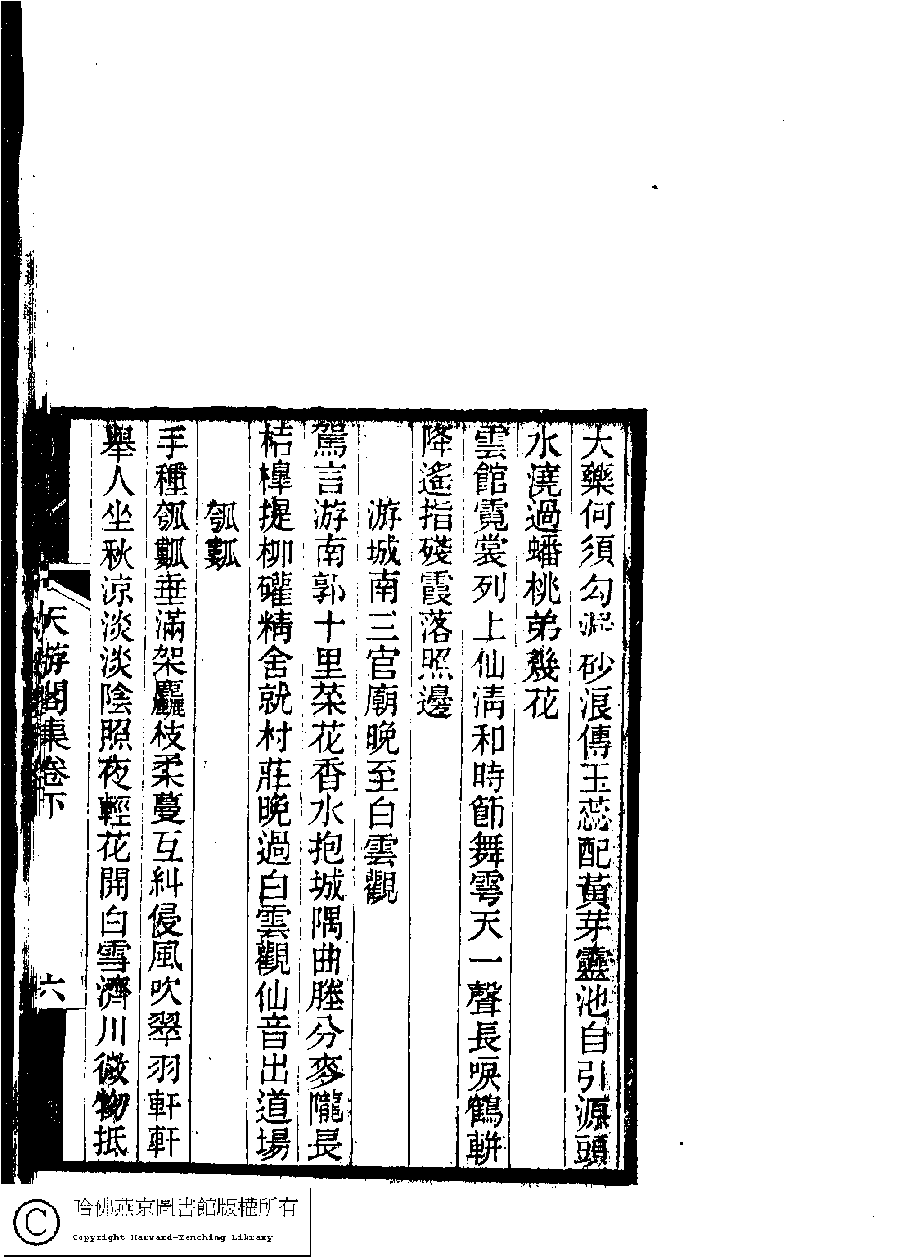 大藥何須勾漏砂浪傳玉蕊配黃芽靈池自引源頭
水澆過蟠桃弟幾花
雲館霓裳列上仙淸和時節舞雩天一聲長唳鶴騈
降遙指殘霞落照邊
游城南三官廟晚至白雲觀
駕言游南郭十里菜花香水抱城隅曲塍分麥隴長
桔槹提柳礶精舍就村莊晚過白雲觀仙音出道場
瓠瓤
手種瓠瓤垂滿架麤枝柔蔓互糾侵風吹翠羽軒軒
舉人坐秋涼淡淡陰照夜輕花開白雪濟川微物抵
天游閣集卷下
六
哈佛燕京圖書館版權所有
Copyright Harvard-Yenching Library